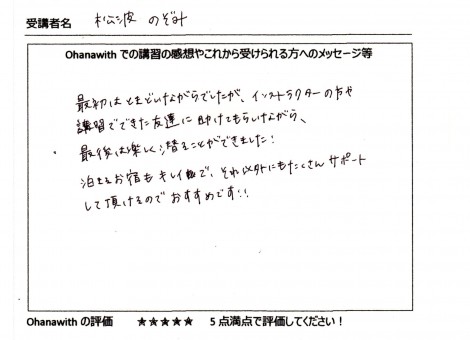 受講者名 松波 のぞみ
Ohanawith での講習の感想やこれから受けられる方へのメッセージ等
最初はとまどいながらでしたが、インストラクターの方や
講習でできた友達に助けてもらいながら、
最後は楽しく潜ることができました!
泊まるお宿もキレイで、それ以外にもたくさんサポート
して頂けるのでおすすめです!!
Ohanawith の評価 ★★★★★ 5 点満点で評価してください!